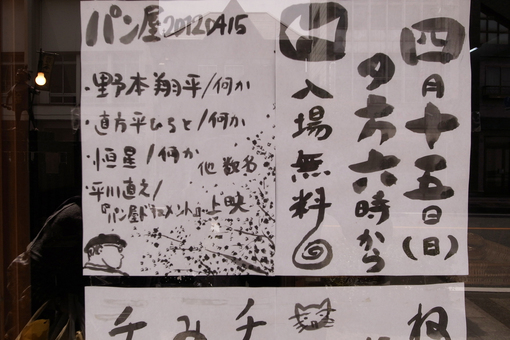 四月十五日(日)
夕方六時から
入場無料
パン屋20120415
・野本翔平/何か
・直方平ひろと/何か
・恒星/何か
他数名
・平川直之/
『パン屋ドキュメント』上映
チ
み
チ
ね